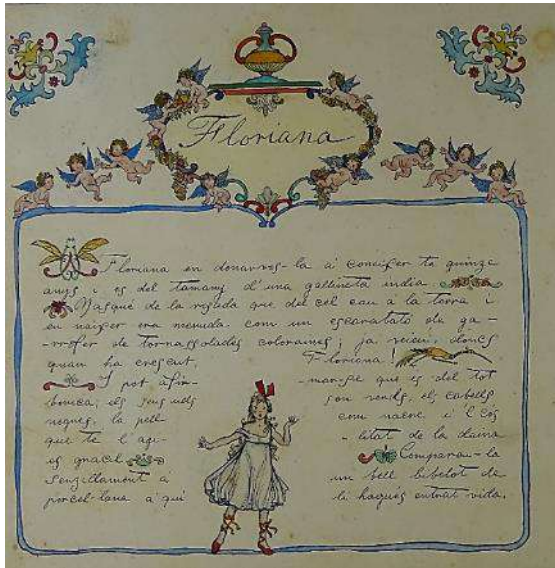 Floriana
A Floriana en donarvos-la a coneixer te quinze
anys i es del tamany d'una gallineta india
Nasqué de la rosada que del cel cau á la terra i
en naixer era menuda com un escarabató de ga-
-rrofer de tornassolades coloraines; ja veieu, doncs
quan ha crescut. Floriana!
I pot afir- -marse que es del tot
bonica; els seus ulls son verds, els cabells
negres, la pell com nacre i l'cos
que té l'agi- -litat de la daina
es gracil Compara-la
senzillament a un bell bibelot de
porcel-lana a qui li hagués entrat vida.